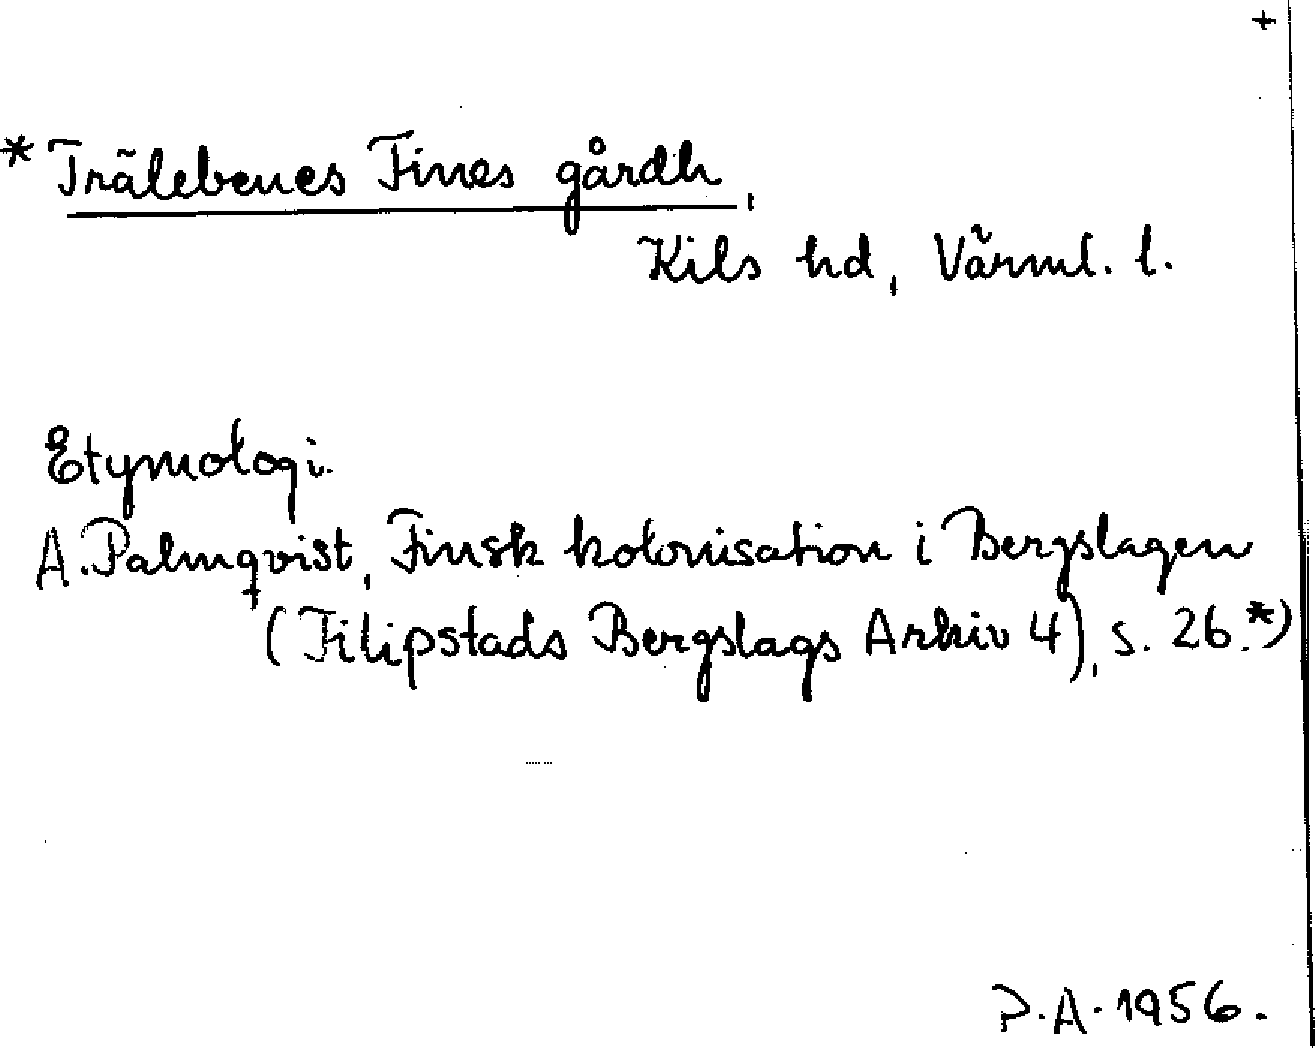 +
* Trälebenes Fines gårdh,
Kils hd, Värml. l.
Etymologi.
A. Palmqvist, Finsk kolonisation i Bergslagen
(Filipstads Bergslags Arkiv 4), s. 26.*)
P.A. 1956.